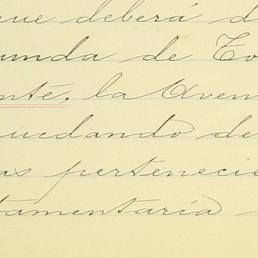 que deberá d
unda de To
nté, la Aven
uedando de
as pertenecie
tamentaria